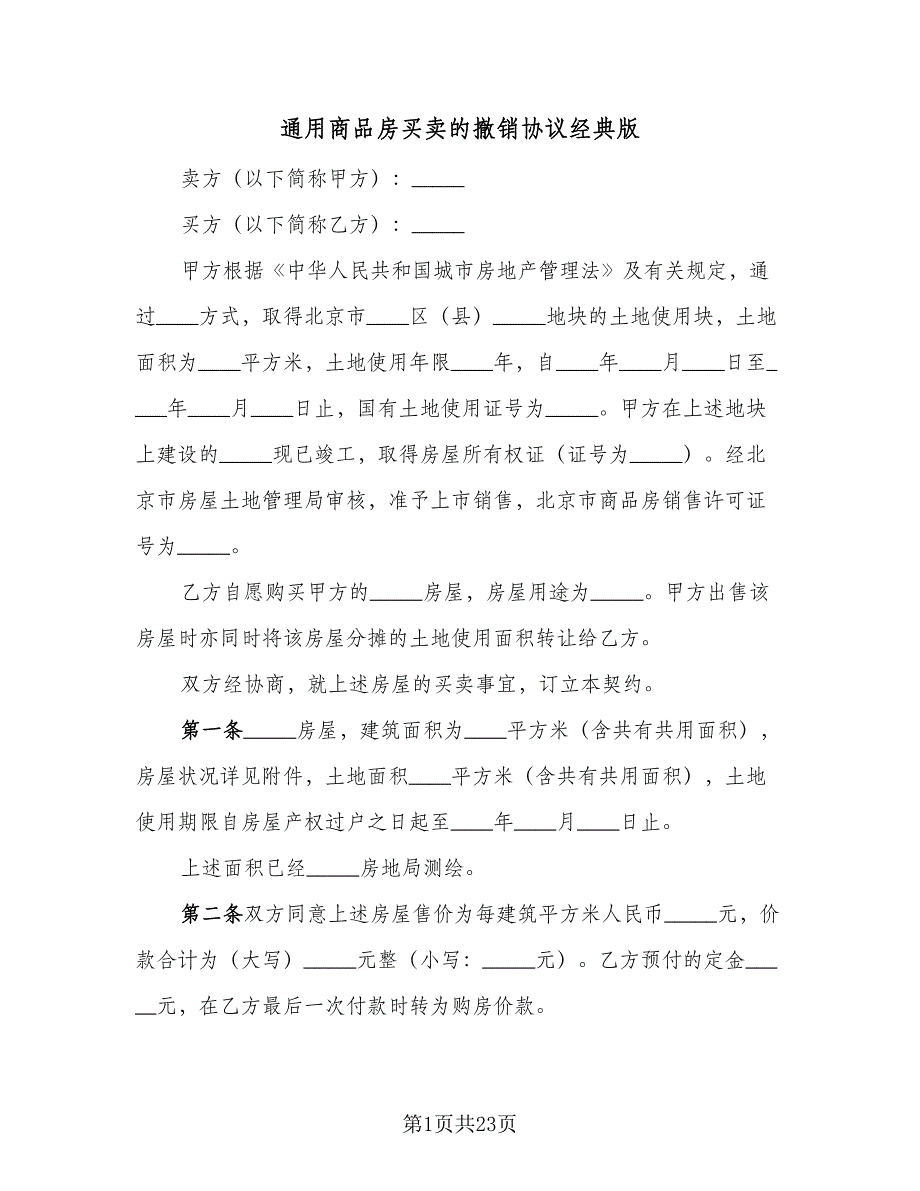 通用商品房买卖的撤销协议经典版
卖方（以下简称甲方）：_____
买方（以下简称乙方）：_____
甲方根据《中华人民共和国城市房地产管理法》及有关规定，通
过____方式，取得北京市____区（县）_____地块的土地使用块，土地
面积为____平方米，土地使用年限____年，自____年____月____日至_
___年____月____日止，国有土地使用证号为_____。甲方在上述地块
上建设的_____现已竣工，取得房屋所有权证（证号为_____）。经北
京市房屋土地管理局审核，准予上市销售，北京市商品房销售许可证
号为_____。
乙方自愿购买甲方的_____房屋，房屋用途为_____。甲方出售该
房屋时亦同时将该房屋分摊的土地使用面积转让给乙方。
双方经协商，就上述房屋的买卖事宜，订立本契约。
第一条_____房屋，建筑面积为____平方米（含共有共用面积），
房屋状况详见附件，土地面积____平方米（含共有共用面积），土地
使用期限自房屋产权过户之日起至____年____月____日止。
上述面积已经_____房地局测绘。
第二条双方同意上述房屋售价为每建筑平方米人民币_____元，价
款合计为（大写）_____元整（小写：_____元）。乙方预付的定金___
__元，在乙方最后一次付款时转为购房价款。
第1页共23页